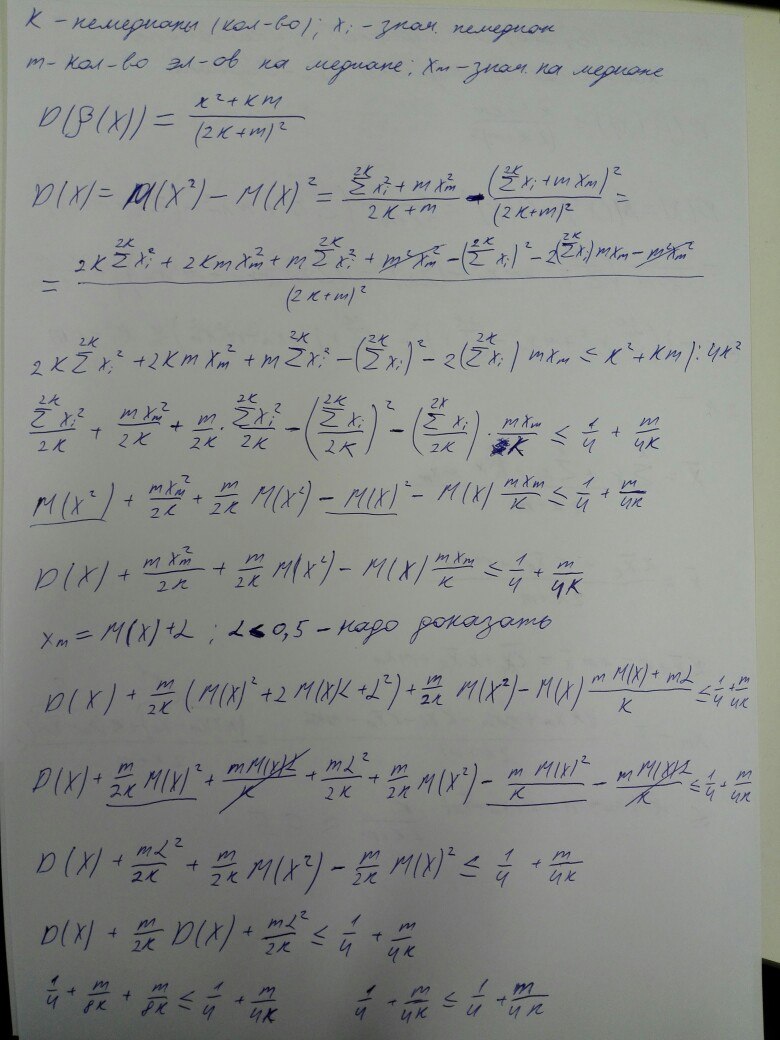 K - немедианы (кол-во); xᵢ - знач. немедиан
m - кол-во эл-ов на медиане; xₘ - знач. на медиане
D(β(X)) = (K² + Km) / (2K+m)²
D(X) = M(X²) - M(X)² = (∑^{2K} xᵢ² + m xₘ²) / (2K+m) - (∑^{2K} xᵢ + m xₘ)² / (2K+m)² =
= (2K ∑^{2K} xᵢ² + 2Km xₘ² + m ∑^{2K} xᵢ² + m² xₘ² - (∑^{2K} xᵢ)² - 2(∑^{2K} xᵢ) m xₘ - m² xₘ²) / (2K+m)²
2K ∑^{2K} xᵢ² + 2Km xₘ² + m ∑^{2K} xᵢ² - (∑^{2K} xᵢ)² - 2(∑^{2K} xᵢ) m xₘ ≤ K² + Km ) : 4K²
∑^{2K} xᵢ² / 2K + m xₘ² / 2K + m/2K · ∑^{2K} xᵢ² / 2K - (∑^{2K} xᵢ / 2K)² - (∑^{2K} xᵢ / 2K) · m xₘ / K ≤ 1/4 + m/4K
M(X²) + m xₘ² / 2K + m/2K M(X²) - M(X)² - M(X) m xₘ / K ≤ 1/4 + m/4K
D(X) + m xₘ² / 2K + m/2K M(X²) - M(X) m xₘ / K ≤ 1/4 + m/4K
xₘ = M(X) + α ; α < 0,5 - надо доказать
D(X) + m/2K (M(X)² + 2M(X)α + α²) + m/2K M(X²) - M(X) (m M(X) + mα) / K ≤ 1/4 + m/4K
D(X) + m/2K M(X)² + m M(X)α / K + mα² / 2K + m/2K M(X²) - m M(X)² / K - m M(X)α / K ≤ 1/4 + m/4K
D(X) + mα² / 2K + m/2K M(X²) - m/2K M(X)² ≤ 1/4 + m/4K
D(X) + m/2K D(X) + mα² / 2K ≤ 1/4 + m/4K
1/4 + m/8K + m/8K ≤ 1/4 + m/4K 1/4 + m/4K ≤ 1/4 + m/4K